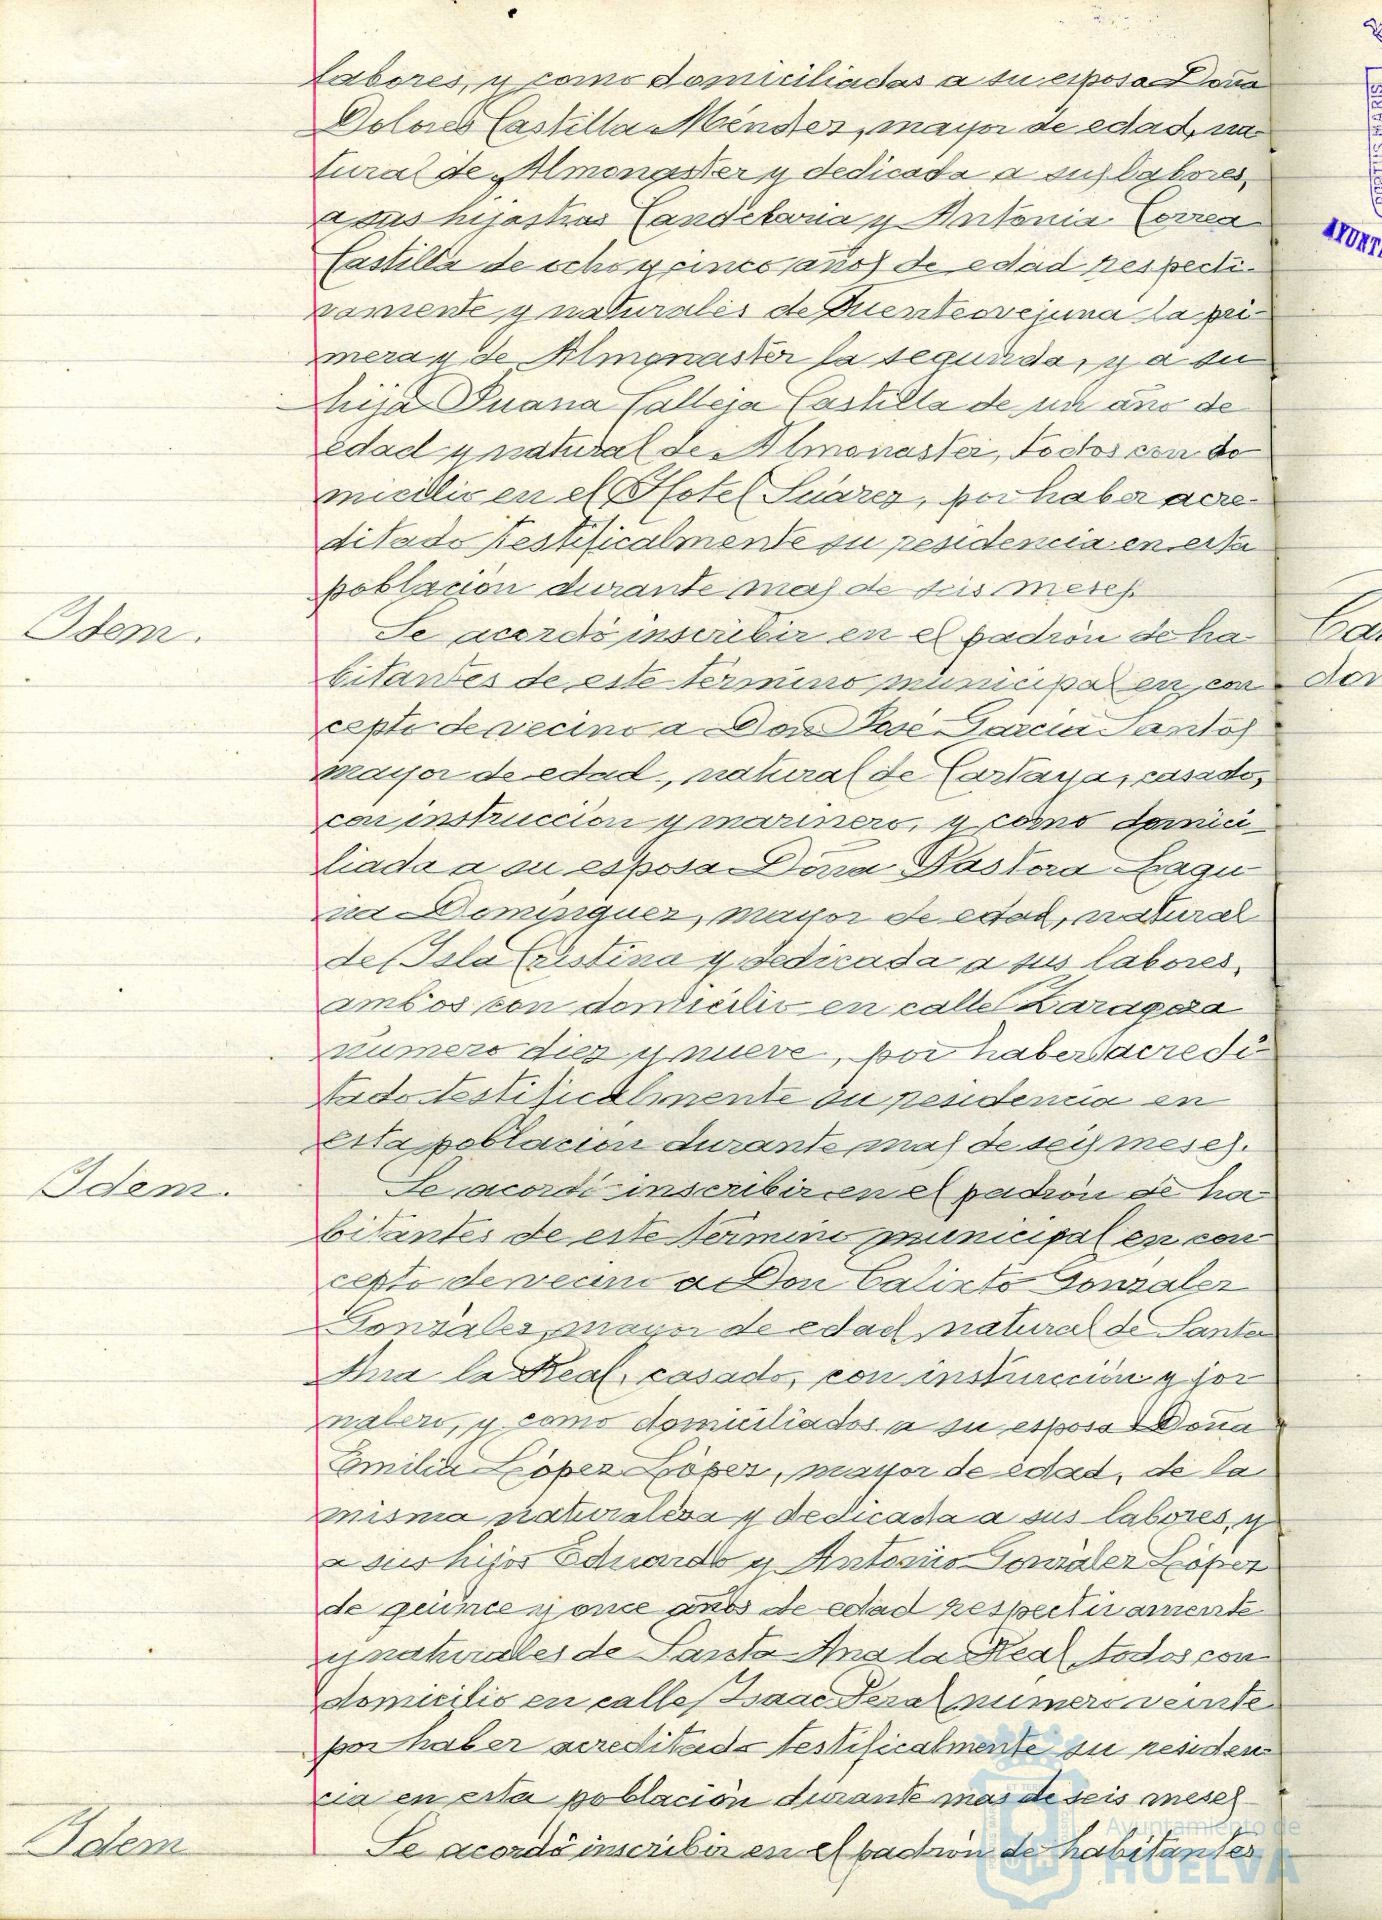 labores, y como domiciliadas a su esposa Doña
Dolores Castilla Méndez, mayor de edad, na-
tural de Almonaster y dedicada a sus labores,
a sus hijastras Candelaria y Antonia Correa
Castilla de ocho y cinco años de edad respecti-
vamente y naturales de Fuenteovejuna la pri-
mera y de Almonaster la segunda, y a su
hija Juana Calleja Castilla de un año de
edad y natural de Almonaster, todos con do
micilio en el Hotel Suárez, por haber acre-
ditado testificalmente su residencia en esta
población durante mas de seis meses.
Idem.
Se acordó inscribir en el padrón de ha-
bitantes de este término municipal en con
cepto de vecino a Don José García Santos
mayor de edad, natural de Cartaya, casado,
con instrucción y marinero, y como domici-
liada a su esposa Doña Pastora Lagu
na Domínguez, mayor de edad, natural
de Isla Cristina y dedicada a sus labores,
ambos con domicilio en calle Zaragoza
número diez y nueve, por haber acredi-
tado testificalmente su residencia en
esta población durante mas de seis meses.
Idem.
Se acordó inscribir en el padrón de ha-
bitantes de este término municipal en con
cepto de vecino a Don Calixto González
González, mayor de edad, natural de Santa
Ana la Real, casado, con instrucción y jor
nalero, y como domiciliados a su esposa Doña
Emilia López López, mayor de edad, de la
misma naturaleza y dedicada a sus labores, y
a sus hijos Eduardo y Antonio González López
de quince y once años de edad respectivamente
y naturales de Santa Ana la Real, todos con
domicilio en calle Isaac Peral número veinte
por haber acreditado testificalmente su residen-
cia en esta población durante mas de seis meses
Idem
Se acordó inscribir en el padrón de habitantes
Ayuntamiento de
HUELVA